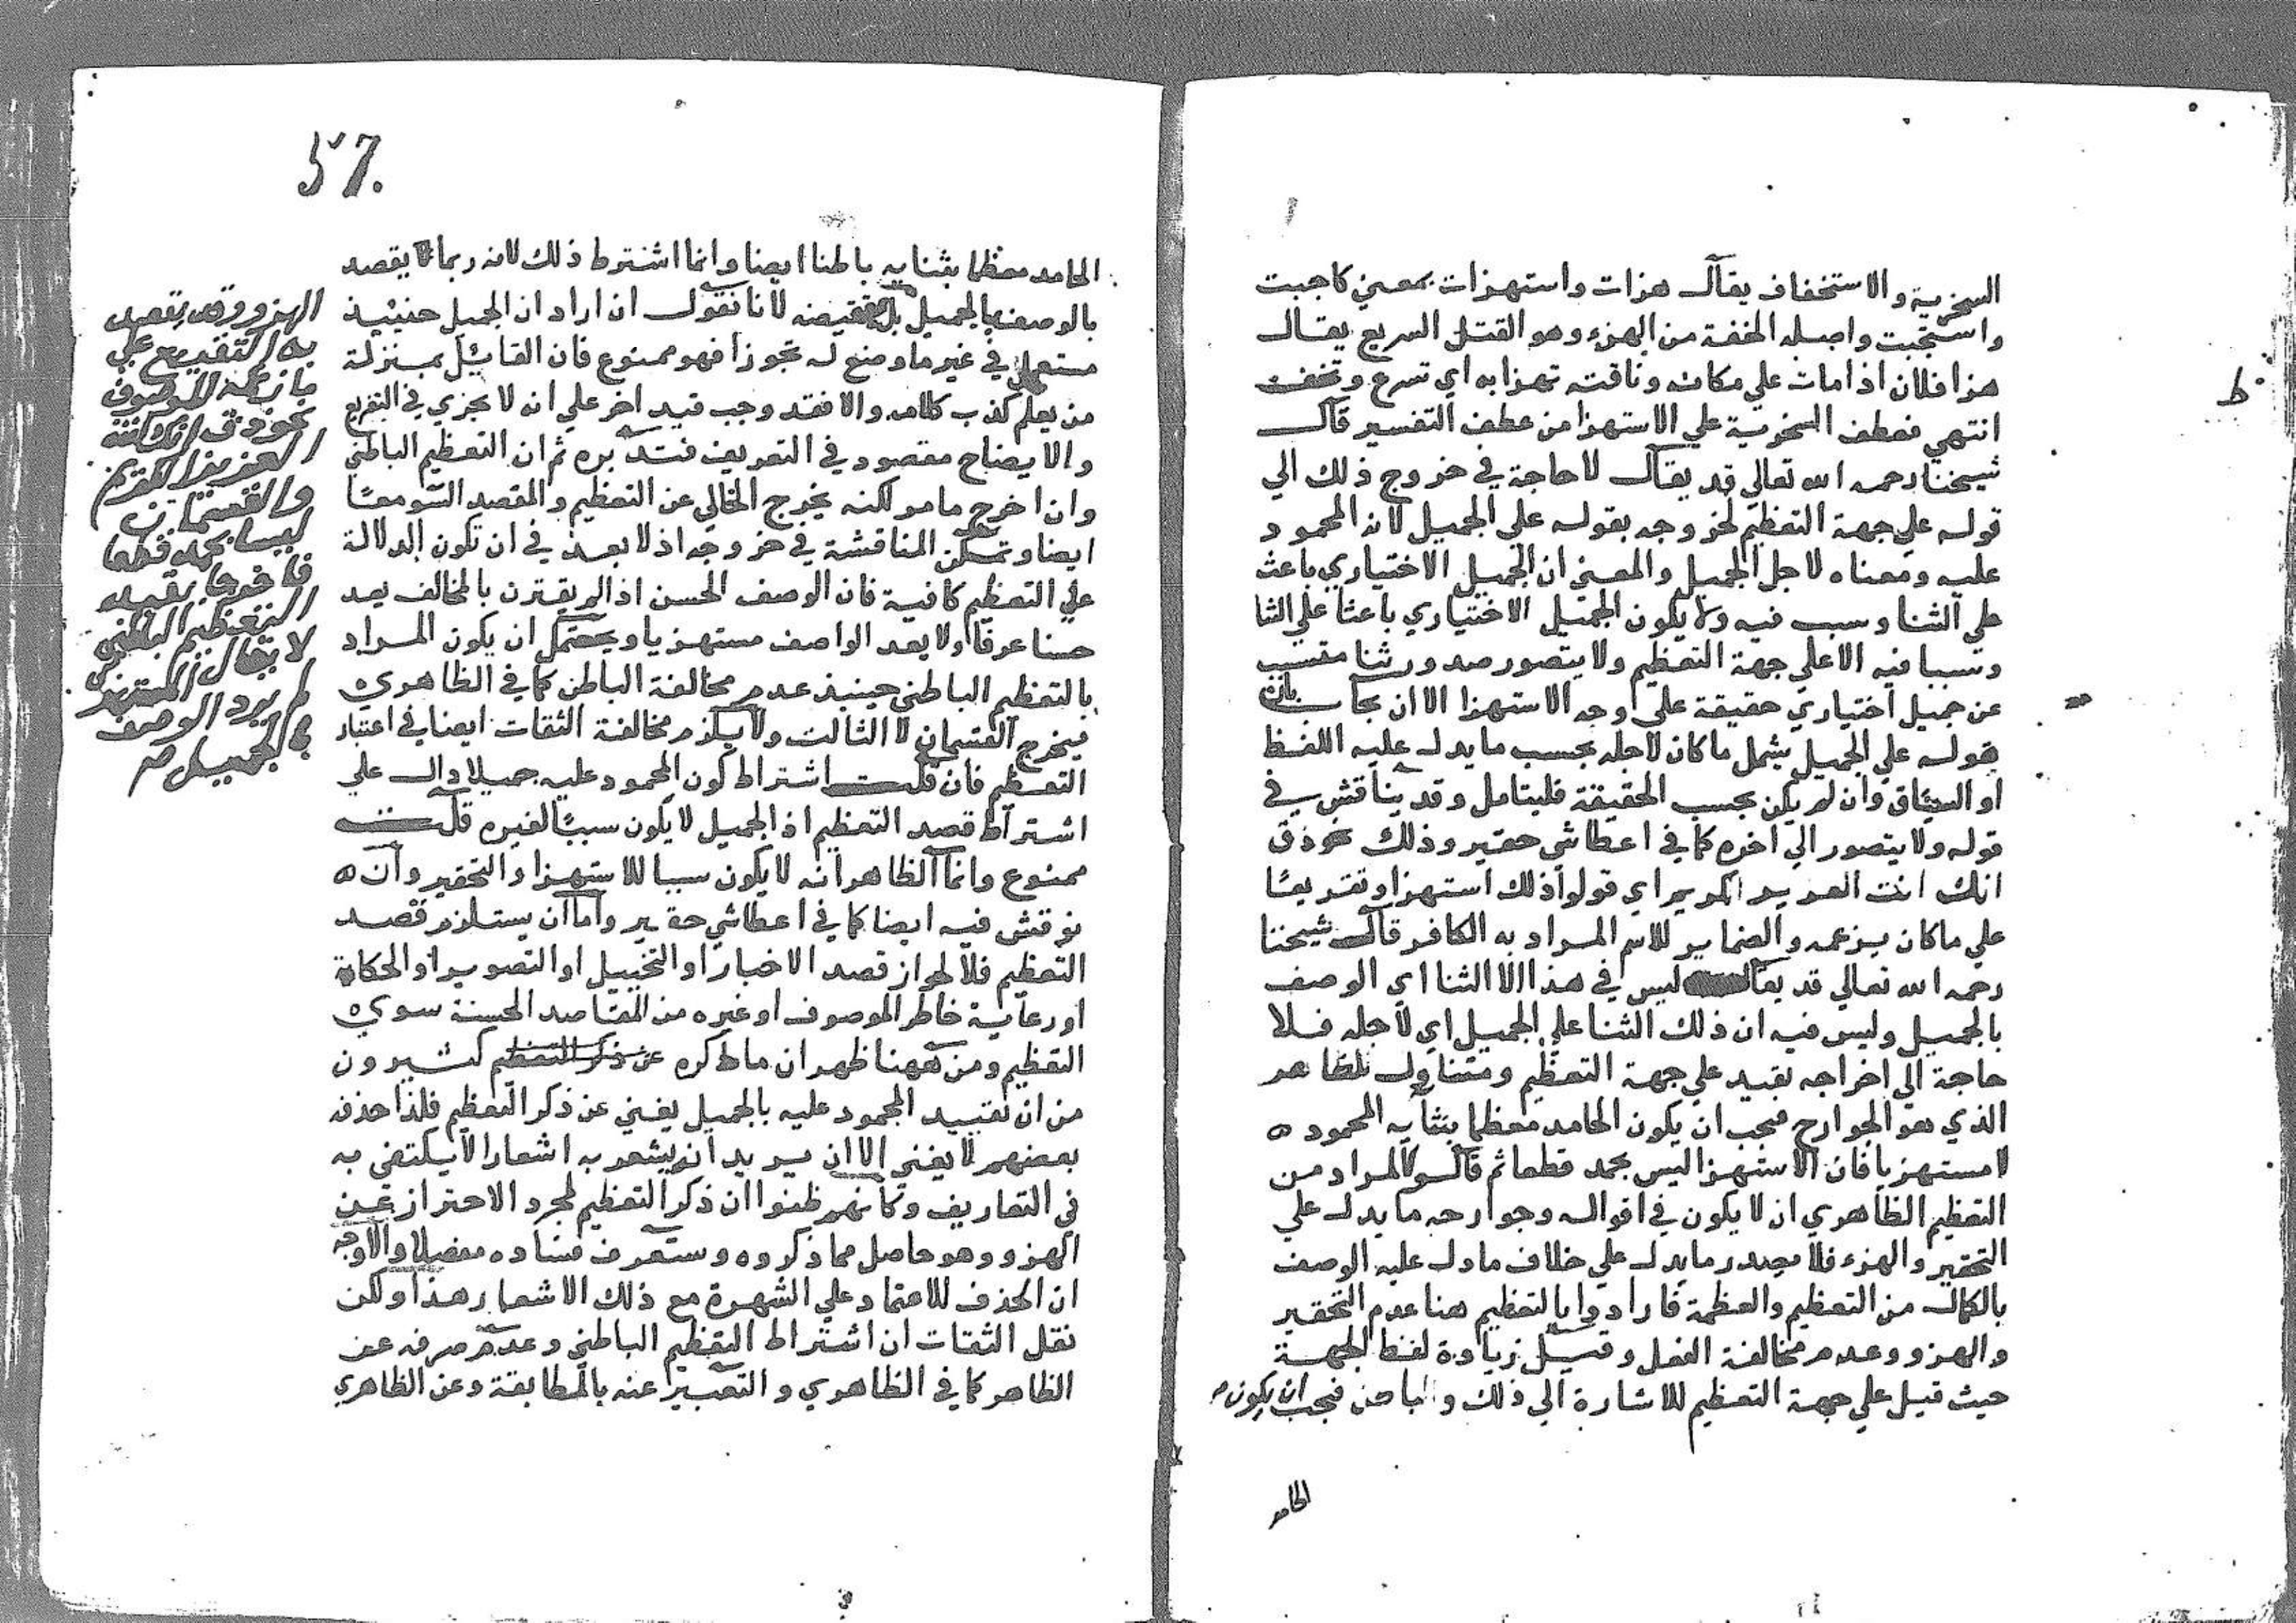 السخرية والاستخفاف يقال هزات واستهزات بمعني كاجبت
واستجبت واصله الخفة من الهزء وهو القتل السريع يقال
هزا فلان اذا مات علي مكانه وناقته تهزا به اي تسرع وتخف
انتهي فعطف السخرية علي الاستهزا من عطف التفسير قال
شيخنا رحمه الله تعالي قد يقال لا حاجة في خروج ذلك الي
قوله علي جهة التعظيم لخروجه بقوله علي الجميل لانه المحمود
عليه ومعناه لاجل الجميل والمعني ان الجميل الاختياري باعث
علي الثنا وسبب فيه ولا يكون الجميل الاختياري باعثا علي الثنا
وسببا فيه الا علي جهة التعظيم ولا يتصور صدور ثنا متسبب
عن جميل اختياري حقيقة علي وجه الاستهزا الا ان يجاب بان
قوله علي الجميل يشمل ما كان لاجله بحسب ما يدل عليه اللفظ
او السياق وان لم يكن بحسب الحقيقة فليتامل وقد يناقش في
قوله ولا يتصور الي اخره كما في اعطا شي حقير وذلك نحو ذق
انك انت العزيز الكريم اي قولوا ذلك استهزا وتقريعا
علي ما كان يزعمه والضماير للاسم المراد به الكافر قال شيخنا
رحمه الله تعالي قد يقال ليس في هذا الا الثنا اي الوصف
بالجميل وليس فيه ان ذلك الثنا علي الجميل اي لاجله فلا
حاجة الي اخراجه بقيد علي جهة التعظيم ومتناول للظاهر
الذي هو الجوارح فيجب ان يكون الحامد معظما بثنايه المحمود
لا مستهزيا فان الاستهزا ليس بحمد قطعا ثم قالوا المراد من
التعظيم الظاهري ان لا يكون في اقواله وجوارحه ما يدل علي
التحقير والهزء فلا يصدر ما يدل علي خلاف ما دل عليه الوصف
بالكمال من التعظيم والعظمة فارادوا بالتعظيم هنا عدم التحقير
والهزو وعدم مخالفة الفعل وقيل زيادة لفظ الجهة
حيث قيل علي جهة التعظيم للاشارة الي ذلك والباطن فيجب ان يكون
الحامد
ط
57.
الحامد معظما بثنايه باطنا ايضا وانما اشترط ذلك لانه ربما لا يقصد
بالوصف بالجميل بل نقيضه لا نا نقول ان اراد ان الجميل حنيئيذ
مستعمل في غير ما وضع له تجوزا فهو ممنوع فان القائل بمنزلة
من يعلم كذب كلامه والا فقد وجب قيد اخر علي انه لا يجزي في التفريع
والايضاح مقصود في التعريف فتدبره ثم ان التعظيم الباطني
وان اخرج ما مر لكنه يخرج الخالي عن التعظيم والمقصد السو معا
ايضا وتمكن المناقشة في خروجه اذ لا بعد في ان تكون الدلالة
علي التعظيم كافية فان الوصف الحسن اذا لم يقترن بالمخالف يعد
حسنا عرفا ولا يعد الواصف مستهزيا ويحتمل ان يكون المراد
بالتعظيم الباطني حينيذ عدم مخالفة الباطن كما في الظاهري
فيخرج القسمان لا الثالث ولا يلزم مخالفة الثقات ايضا في اعتبار
التعظيم فان قلت اشتراط كون المحمود عليه جميلا دال علي
اشتراط قصد التعظيم اذ الجميل لا يكون سببا لغيره قلت
ممنوع وانما الظاهر انه لا يكون سببا للاستهزا والتحقير وان
نوقش فيه ايضا كما في اعطا شي حقير واما ان يستلزم قصد
التعظيم فلا لجواز قصد الاخبار او التخييل او التصوير او الحكاة
او رعاية خاطر الموصوف او غيره من المقاصد الحسنة سوي
التعظيم ومن ههنا ظهر ان ما ذكره عن ذكر التعظيم كثيرون
من ان تقييد المحمود عليه بالجميل يغني عن ذكر التعظيم فلذا حذفه
بعضهم لا يغني الا ان يريد انه يشعر به اشعارا لا يكتفي به
في التعاريف وكانهم ظنوا ان ذكر التعظيم لمجرد الاحتراز عن
الهزو وهو حاصل مما ذكروه وستعرف فساده مفصلا والاوجه
ان الحذف للاعتماد علي الشهرة مع ذلك الاشعار هذا ولكن
نقل الثقات ان اشتراط التعظيم الباطني وعدم صرفه عن
الظاهر كما في الظاهري والتعبير عنه بالمطابقة وعن الظاهري
الهزو وقد يقصد
به التقديع علي
ما زعمه الموصوف
نحو ذق انك انت
العزيز الكريم
والقسمان
ليسا بحمد قطعا
فاخرجا بقيد
التعظيم الباطني
لا يقال المستهزي
لم يرد الوصف
بالجميل صح